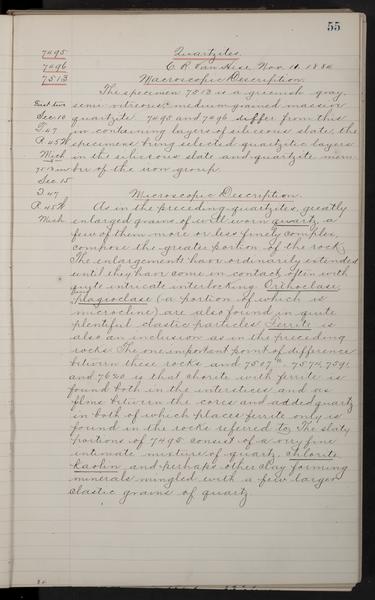 55
7495
7496
7513
First two
Sec. 10
T. 47
R. 45 W
Mich
7513 in
Sec. 15
T. 47
R. 45 W.
Mich
Quartzites.
C. R. Van Hise Nov. 11. 1886
Macroscopic Description.
The specimen 7513 is a greenish gray,
semi vitreous medium grained massive
quartzite. 7495 and 7496 differ from this
in containing layers of siliceous slate, the
specimens being selected quartzitic layers
in the siliceous slate and quartzite mem-
ber of the iron group.
Microscopic Description.
As in the preceding quartzites, greatly
enlarged grains of well worn quartz, a
few of them more or less finely complex,
compose the greater portion of the rock.
The enlargements have ordinarily extended
until they have come in contact, often with
quite intricate interlocking. Orthoclase,
plagioclase (a portion of which is
microcline) are also found in quite
plentiful clastic particles. Ferrite is
also an inclusion as in the preceding
rocks. The one important point of difference
between these rocks and 7507, 7574, 7591,
and 7620 is that chlorite with ferrite is
found both in the interstices and as
films between the cores and added quartz
in both of which places ferrite only is
found in the rocks referred to. The slaty
portions of 7495 consist of a very fine
intimate mixture of quartz, chlorite,
kaolin and perhaps other clay forming
minerals mingled with a few larger
clastic grains of quartz.